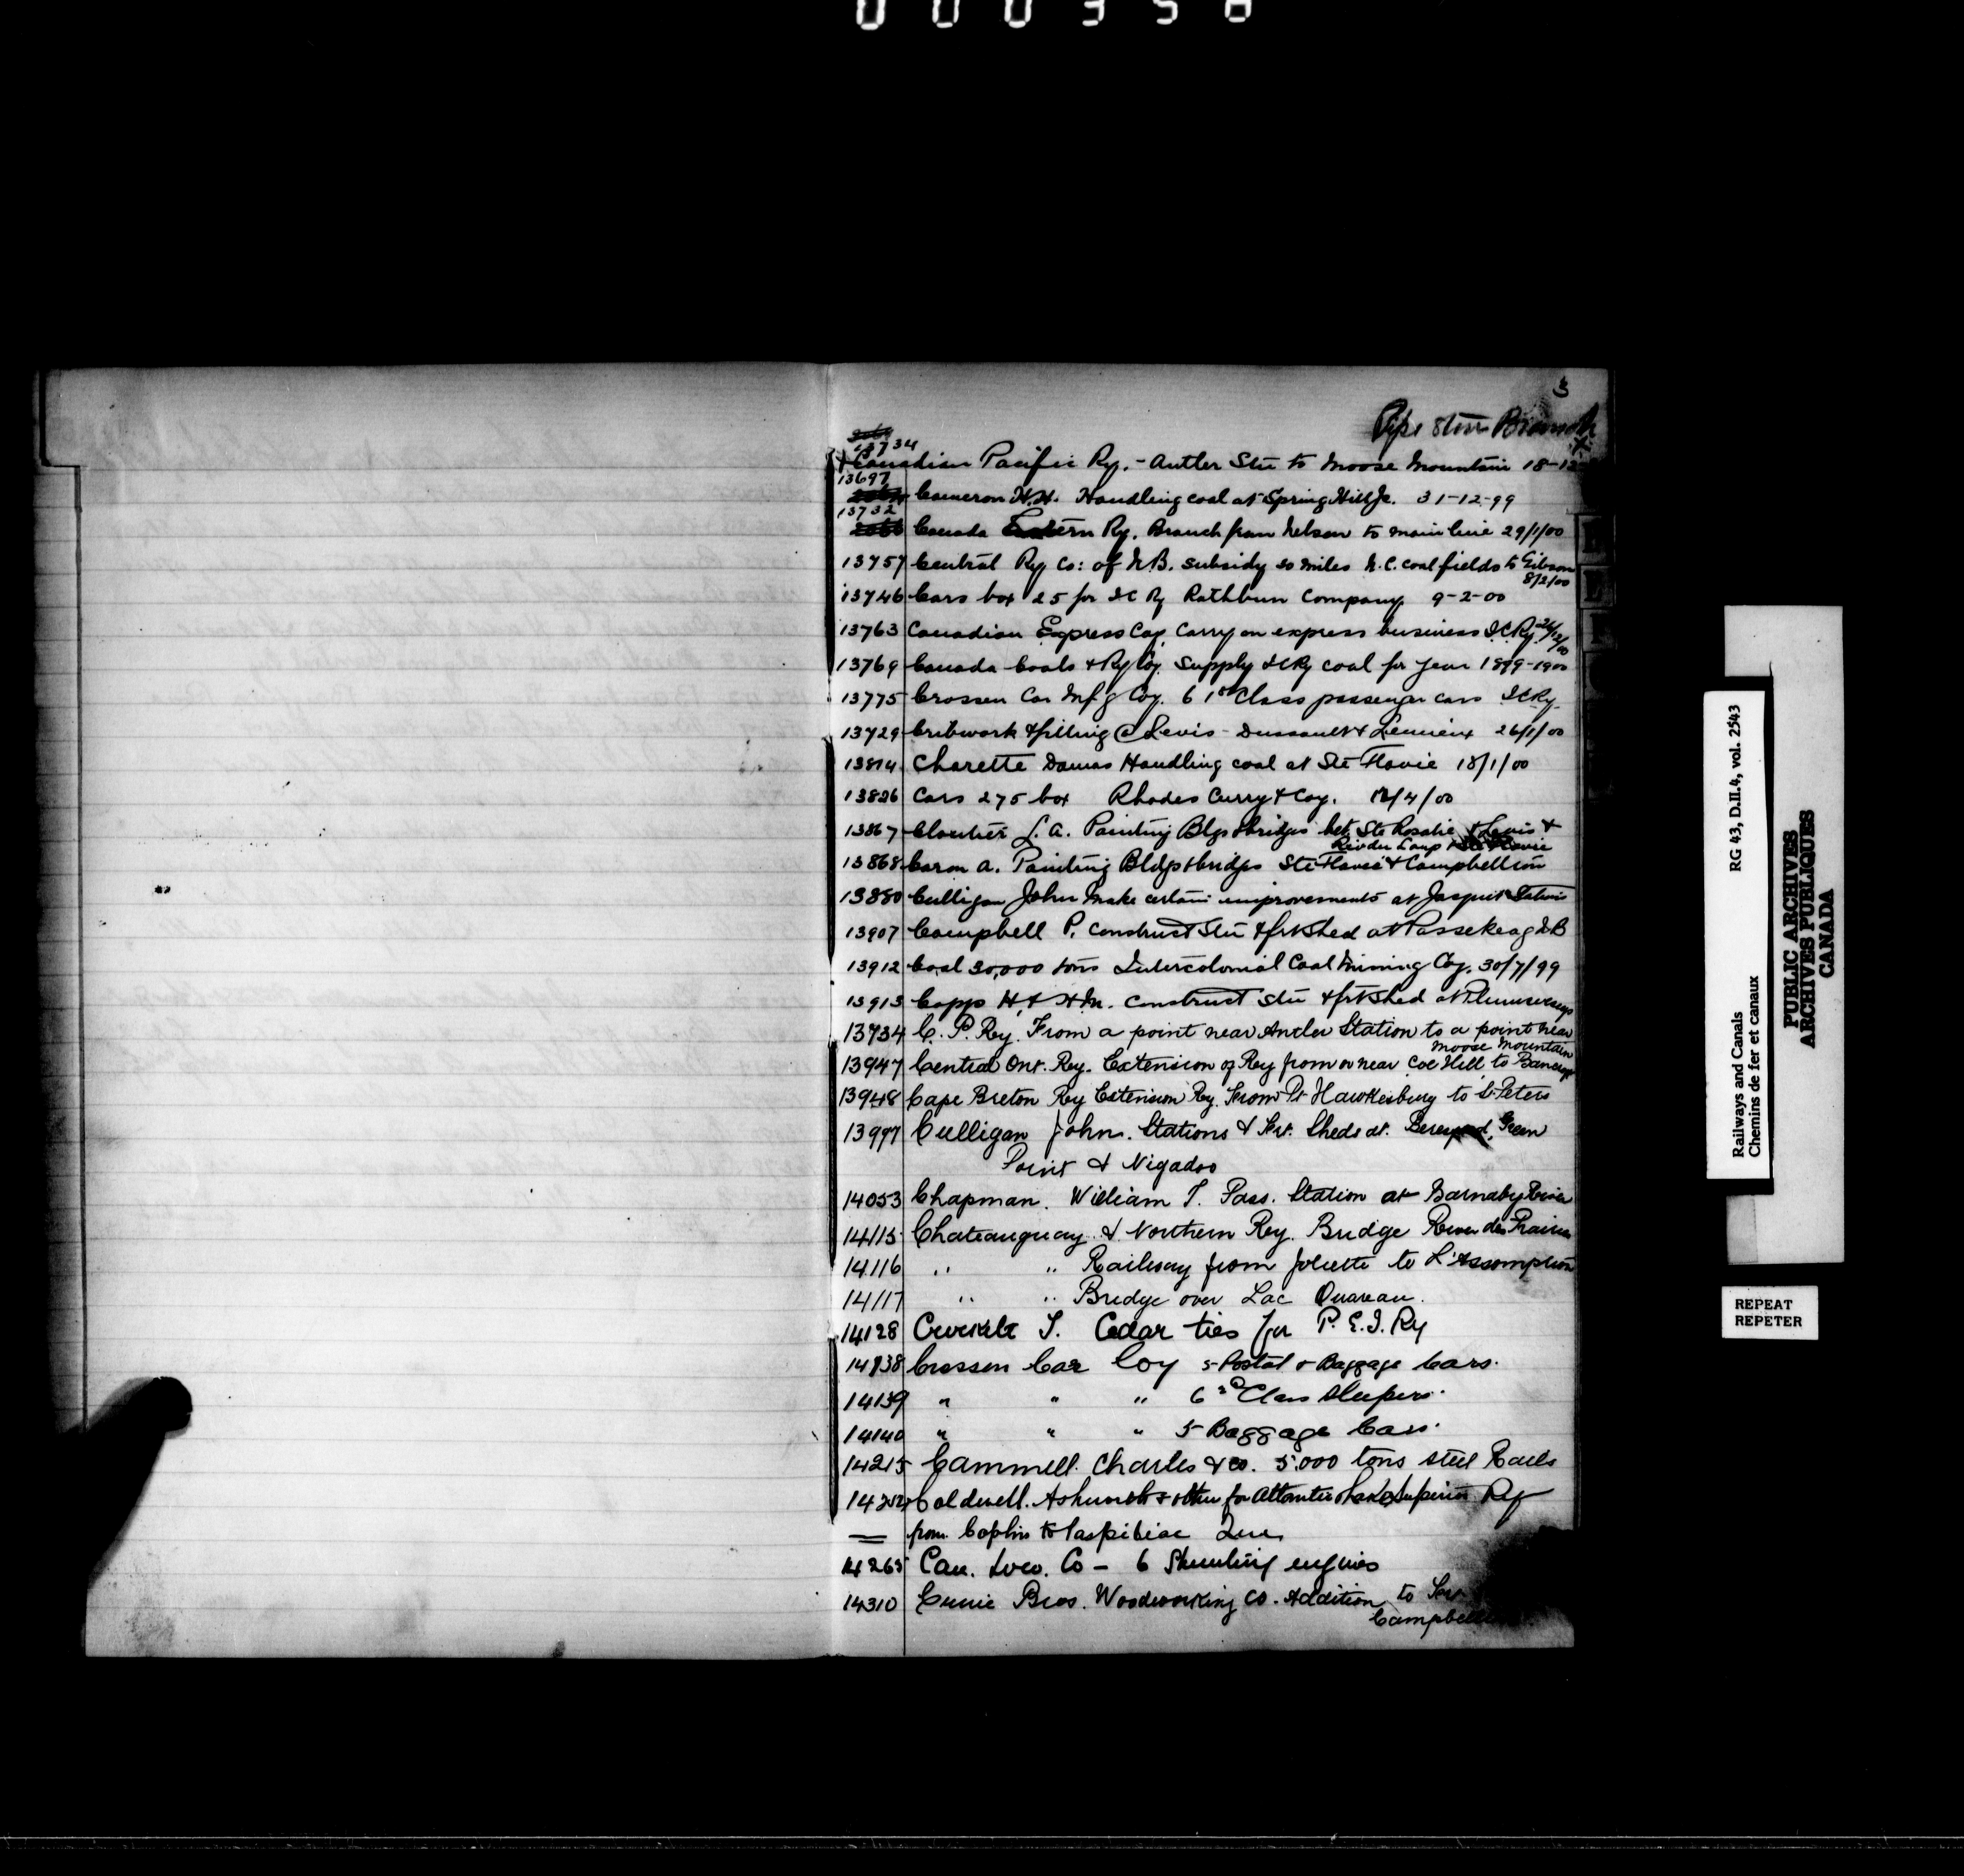 000358
3
Pipe Stone Branch
13734
+ Canadian Pacific Ry. - Antler Stn to Moose Mountain 18-12
13697
Cameron H.H. Handling coal at Spring Hill Jc. 31-12-99
13732
Canada Eastern Ry. Branch from Nelson to main line 29/1/00
13757 Central Ry Co: of N.B. subsidy miles N.C. coal fields to Gibson
8/2/00
13746 Cars box 25 for I C Ry Rathbun Company 9-2-00
13763 Canadian Express Coy Carry on express business I.C.Ry.
13769 Canada Coals & Ry Coy. Supply I C Ry coal for year 1899-1900
13775 Crossen Car Mfg Coy. 6 1st Class passenger cars I C Ry
13729 Cribwork & filling @ Levis - Dussault & Lemieux 26/1/00
13814 Charette Damas Handling coal at Ste Flavie 18/1/00
13826 Cars 275 box Rhodes Curry & Coy. 12/4/00
13867 Cloutier L.A. Painting Blgs & bridges bet. Ste Rosalie & Levis &
Riv du Loup & Ste Flavie
13868 Caron A. Painting Bldgs & bridges Ste Flavie & Campbellton
13880 Culligan John Make certain improvements at Jacquet Station
13907 Campbell P. Construct Stn & frt shed at Passekeag N B
13912 Coal 30,000 tons Intercolonial Coal Mining Coy. 30/7/99
13913 Copps H. & H.M. Construct Stn & frt Shed at Plumweseep
13734 C. P. Rey. From a point near Antler Station to a point near
Moose Mountain
13947 Central Ont. Rey. Extension of Rey from or near Coe Hill to Bancroft
13948 Cape Breton Rey Extension Rey. From Pt Hawkesbury to St Peters
13997 Culligan John. Stations & Frt. Sheds at. Green
Point & Nigadoo
14053 Chapman. William T. Pass. Station at Barnaby River
14115 Chateauguay & Northern Rey. Bridge River des Prairies
14116 " " Railway from Joliette to L'Assomption
14117 " " Bridge over Lac Ouareau.
14128 T. Cedar ties for P.E.I. Ry
14138 Crossen Car Coy 5 Postal & Baggage Cars.
14139 " " " 6 2d Class Sleepers.
14140 " " " 5 Baggage Cars.
14215 Cammell. Charles & co. 5.000 tons steel Rails
14252 Caldwell. Ashworth & other for Atlantic & Lake Superior Ry
from Caplin to Paspebiac Que
14265 Can. Loco. Co - 6 Shunting engines
14310 Currie Bros. Woodworking Co. Addition to
RG 43, D.II.4, vol. 2543
Railways and Canals
Chemins de fer et canaux
PUBLIC ARCHIVES
ARCHIVES PUBLIQUES
CANADA
REPEAT
REPETER